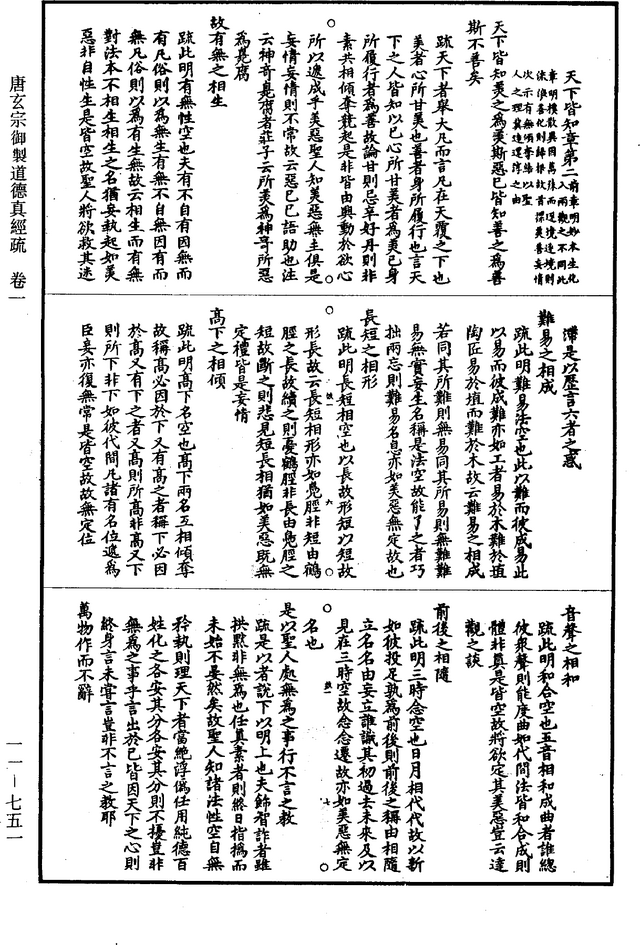 天下皆知章第二前章明妙本生化入兩觀之不同此
章明樸散異因萬殊而逐境逐境則
流浪善化則歸根故首標美善妄情
次示有無明學陽以聖
人之理冀速還淳之由
天下皆知美之為美斯惡已皆知善之為善
斯不善矣
疏天下者舉大凡而言凡在天覆之下也
美者心所甘美也善者身所履行也言天
下之人皆知以已心所甘美者為美已身
所履行者為善故論甘則忌辛好丹則非
素共相傾奪競起是非皆由興動於欲心
所以遞成乎美惡聖人知美惡無主俱是
妄情妄情則不常故云惡已已語助也注
云神奇臭腐者莊子云所美為神奇所惡
為臭腐
故有無之相生
疏此明有無性空也夫有不自有因無而
有凡俗則以為無生有無不自無因有而
無凡俗則以為有生無故云相生而有無
對法本不相生相生之名猶妄執起如美
惡非自性生是皆空故聖人將欲救其迷
滯是以歷言六者之惑
難易之相成
疏此明難易法空也此以難而彼成易此
以易而彼成難亦如工者易於木難於埴
陶匠易於埴而難於木故云難易之相成
若同其所難則無易同其所易則無難難
易無實妄生名稱是法空故能了之者巧
拙兩忘則難易名息亦如美惡無定故也
長短之相形
疏此明長短相空也以長故形短以短故
形長故云長短相形亦如鳧脛非短由鶴
脛之長故續之則憂鶴脛非長由鳧脛之
短故斷之則悲見短長相猶如美惡既無
定體皆是妄情
高下之相傾
疏此明高下名空也高下兩名互相傾奪
故稱高必因於下又有高之者稱下必因
於高又有下之者又高則所高非高又下
則所下非下如彼代間凡諸有名位遞為
臣妾亦復無常是皆空故故無定位
音聲之相和
疏此明和合空也五音相和成曲者誰總
彼眾聲則能度曲如代間法皆和合成則
體非真是皆空故將欲定其美惡豈云達
觀之談
前後之相隨
疏此明三時念空也日月相代代故以新
如彼投足孰為前後則前後之稱由相隨
立名名由妄立誰識其初過去未來及以
見在三時空故念念遷故亦如美惡無定
名也
是以聖人處無為之事行不言之教
疏是以者說下以明上也夫飾智詐者雖
拱默非無為也任真素者則終日指撝而
未始不晏然矣故聖人知諸法性空自無
矜執則理天下者當絕浮偽任用純德百
姓化之各安其分各安其分則不擾豈非
無為之事乎言出於已皆因天下之心則
終身言未嘗言豈非不言之教耶
萬物作而不辭
唐玄宗御製道德真經疏 卷一
一一—七五一